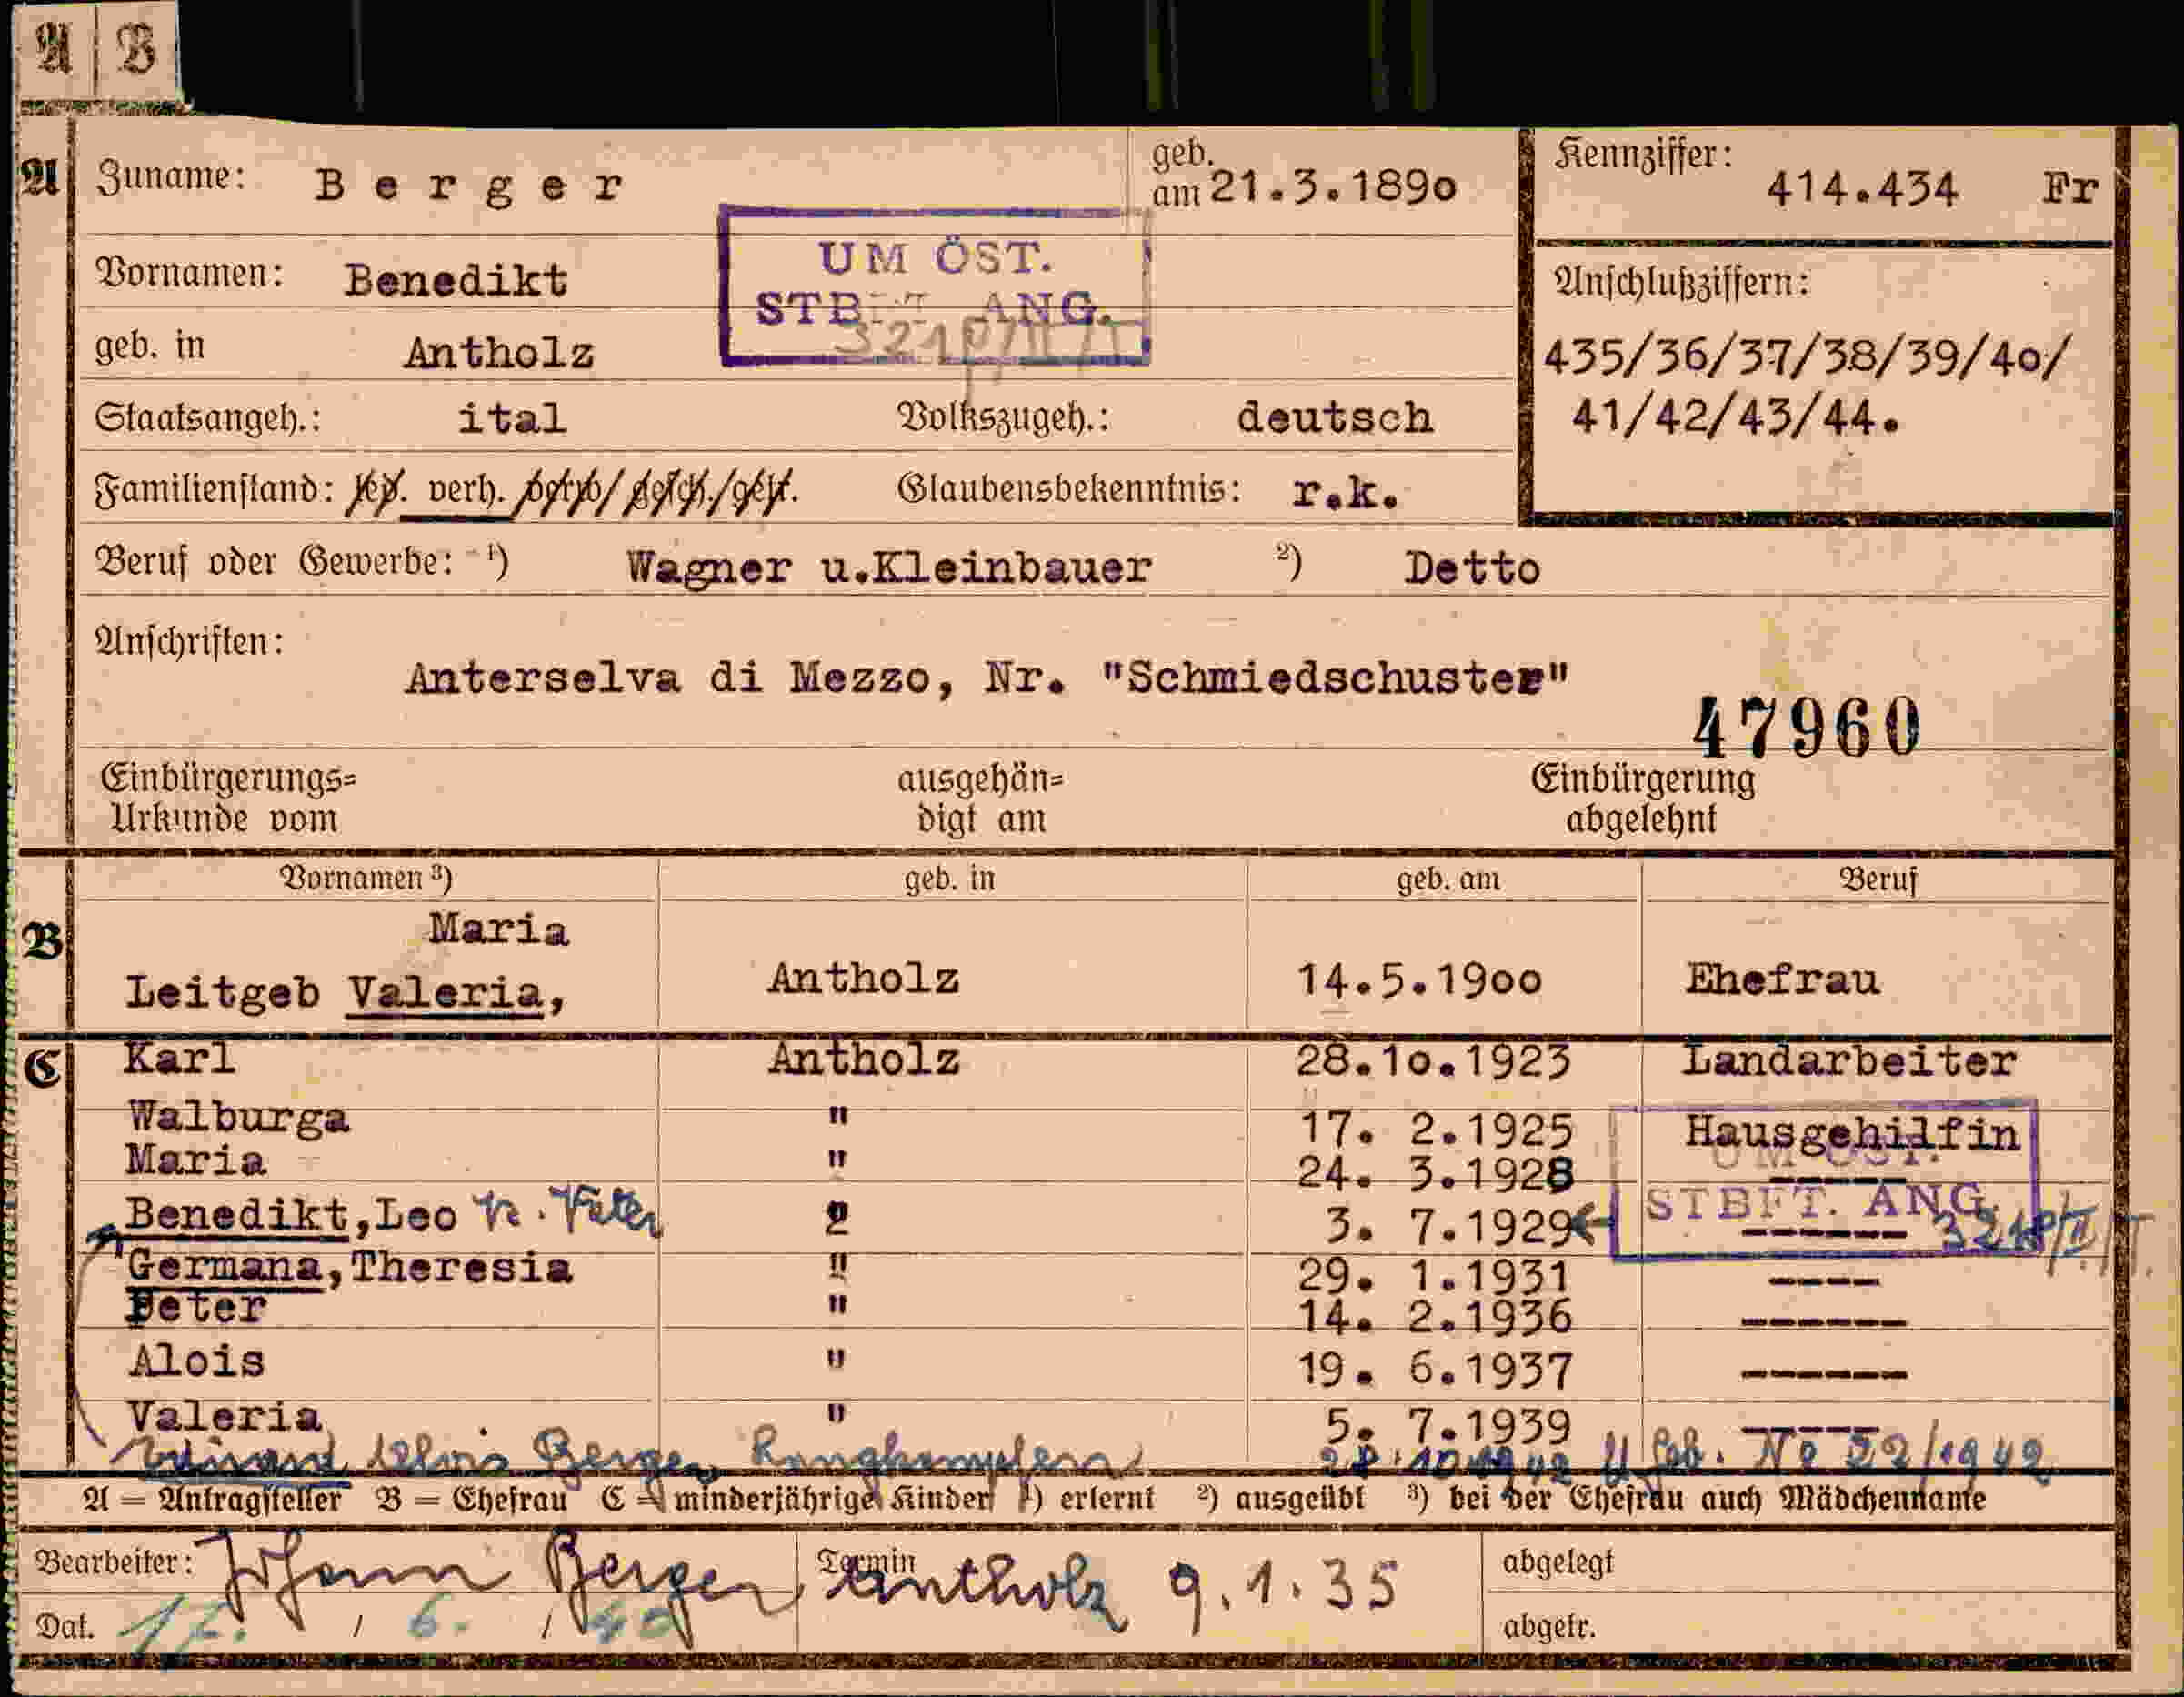 A B
A Zuname: Berger geb. am 21.3.1890 Kennziffer: 414.434 Fr
UM ÖST.
STBFT. ANG.
Vornamen: Benedikt
Anschlußziffern:
geb. in Antholz
435/36/37/38/39/40/
Staatsangeh.: ital Volkszugeh.: deutsch
41/42/43/44.
Familienstand: led. verh. verw/ gesch./get. Glaubensbekenntnis: r.k.
Beruf oder Gewerbe: 1) Wagner u.Kleinbauer 2) Detto
Anschriften:
Anterselva di Mezzo, Nr. "Schmiedschuster"
47960
Einbürgerungs= ausgehän= Einbürgerung
Urkunde vom digt am abgelehnt
Vornamen 3) geb. in geb. am Beruf
Maria
B Leitgeb Valeria, Antholz 14.5.1900 Ehefrau
C Karl Antholz 28.10.1923 Landarbeiter
Walburga " 17. 2.1925 Hausgehilfin
UM ÖST.
Maria " 24. 3.1928 ------
STBFT. ANG.
Benedikt,Leo 3. 7.1929 ------
Germana,Theresia " 29. 1.1931 ----
Peter " 14. 2.1936 ------
Alois " 19. 6.1937 ------
Valeria " 5. 7.1939 -----
Alois Berger 28.10.1942 Geb. No 22/1942
A = Antragsteller B = Ehefrau C = minderjährige Kinder 1) erlernt 2) ausgeübt 3) bei der Ehefrau auch Mädchenname
Bearbeiter: Johann Berger Termin Antholz 9.1.35 abgelegt
Dat. 17. / 6. / 40 abgetr.